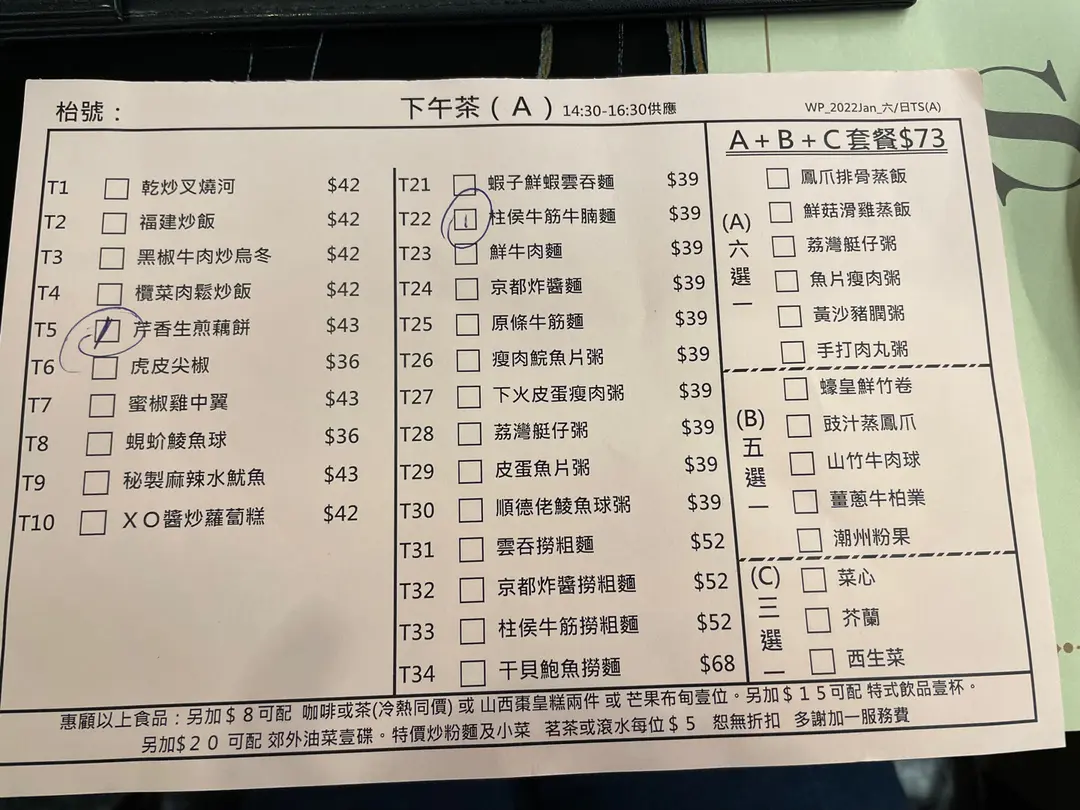 枱號：
下午茶（A）14:30-16:30供應
WP_2022Jan_六/日TS(A)
T1 乾炒叉燒河 $42
T2 福建炒飯 $42
T3 黑椒牛肉炒烏冬 $42
T4 欖菜肉鬆炒飯 $42
T5 芹香生煎藕餅 $43
T6 虎皮尖椒 $36
T7 蜜椒雞中翼 $43
T8 蜆蚧鯪魚球 $36
T9 秘製麻辣水魷魚 $43
T10 ＸＯ醬炒蘿蔔糕 $42
T21 蝦子鮮蝦雲吞麵 $39
T22 柱侯牛筋牛腩麵 $39
T23 鮮牛肉麵 $39
T24 京都炸醬麵 $39
T25 原條牛筋麵 $39
T26 瘦肉鯇魚片粥 $39
T27 下火皮蛋瘦肉粥 $39
T28 荔灣艇仔粥 $39
T29 皮蛋魚片粥 $39
T30 順德佬鯪魚球粥 $39
T31 雲吞撈粗麵 $52
T32 京都炸醬撈粗麵 $52
T33 柱侯牛筋撈粗麵 $52
T34 干貝鮑魚撈麵 $68
A+B+C套餐$73
(A)六選一
鳳爪排骨蒸飯
鮮菇滑雞蒸飯
荔灣艇仔粥
魚片瘦肉粥
黃沙豬膶粥
手打肉丸粥
(B)五選一
蠔皇鮮竹卷
豉汁蒸鳳爪
山竹牛肉球
薑蔥牛柏業
潮州粉果
(C)三選一
菜心
芥蘭
西生菜
惠顧以上食品：另加＄８可配 咖啡或茶(冷熱同價) 或 山西棗皇糕兩件 或 芒果布甸壹位。另加＄１５可配 特式飲品壹杯。
另加$２０ 可配 郊外油菜壹碟。特價炒粉麵及小菜 茗茶或滾水每位＄５ 恕無折扣 多謝加一服務費
S